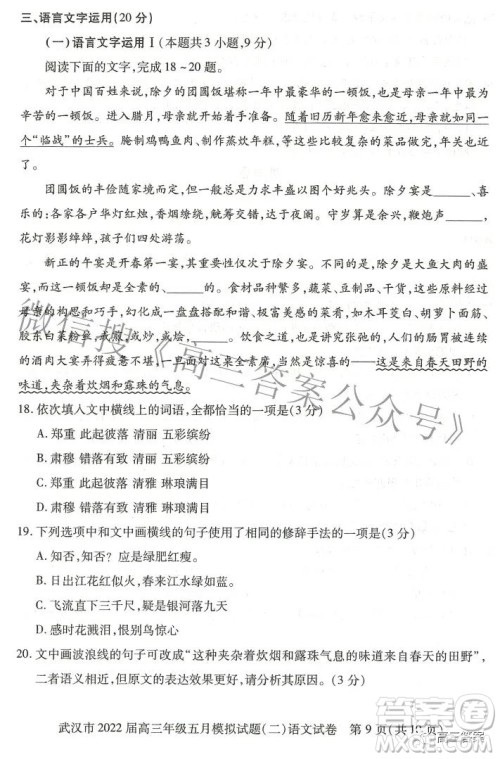 三、语言文字运用(20分)
(一)语言文字运用Ⅰ(本题共3小题,9分)
阅读下面的文字,完成18~20题。
对于中国百姓来说,除夕的团圆饭堪称一年中最豪华的一顿饭,也是母亲一年中最
为辛苦的一顿饭。进入腊月,母亲就开始忙碌了。旧历新年愈来愈近,母亲就犹如同一
个“临战”的士兵。腌制鸡鸭鱼肉、熏蒸煎炸等,悉数登场,各种比较复杂的菜品做了
个完全,甚至连午夜的饺子都提前包好。
团圆饭的丰俭随家境而定,但其仪式感却从不衰减。应该说除夕宴是______、喜
乐的:各家各户华灯红烛、香烟缭绕,觥筹交错、饭语欢言。守岁算是余兴,鞭炮声______,
花灯影影绰绰,许多孩子四处游荡。
新正的午宴是开春第一宴,其重要性仅次于除夕宴。除夕是大鱼大肉的盛
宴,而这一顿饭却是全素的、______的,食材为蔬菜、豆制品、干货等,全素宴席充满了
母亲的构思和巧手,幻化成了一道道美食,如木耳茭白、胡萝卜面筋、
胶东白菜等,或蒸或炒,或咸或烩,______。饮食之道,也是讲究张弛的。人们的肠胃被连续
的酒肉大宴弄得疲惫不堪,一顿全素的宴席适时地调剂了一下——这是来自春天田野的
味道,夹杂着炊烟和露珠的气息。
18.依次填入文中横线上的词语,全都恰当的一项是(3分)
A.郑重 此起彼落 清丽 五彩缤纷
B.肃穆 错落有致 清丽 琳琅满目
C.郑重 此起彼落 清雅 五彩缤纷
D.肃穆 错落有致 清雅 琳琅满目
19.下列选项中和文中画横线的句子使用了相同的修辞手法的一项是(3分)
A.知否,知否,应是绿肥红瘦。
B.日出江花红似火,春来江水绿如蓝。
C.飞流直下三千尺,疑是银河落九天
D.感时花溅泪,恨别鸟惊心。
20.文中画波浪线的句子可改成“这种夹杂着炊烟和露珠气息的味道来自春天的田野”,
二者语义相近,但为什么说原文表达效果更好?(3分)
武汉市2022届高三年级五月模拟试题(二)语文试卷 第9页(共10页)
微信搜《高三答案公众号》
高三答案